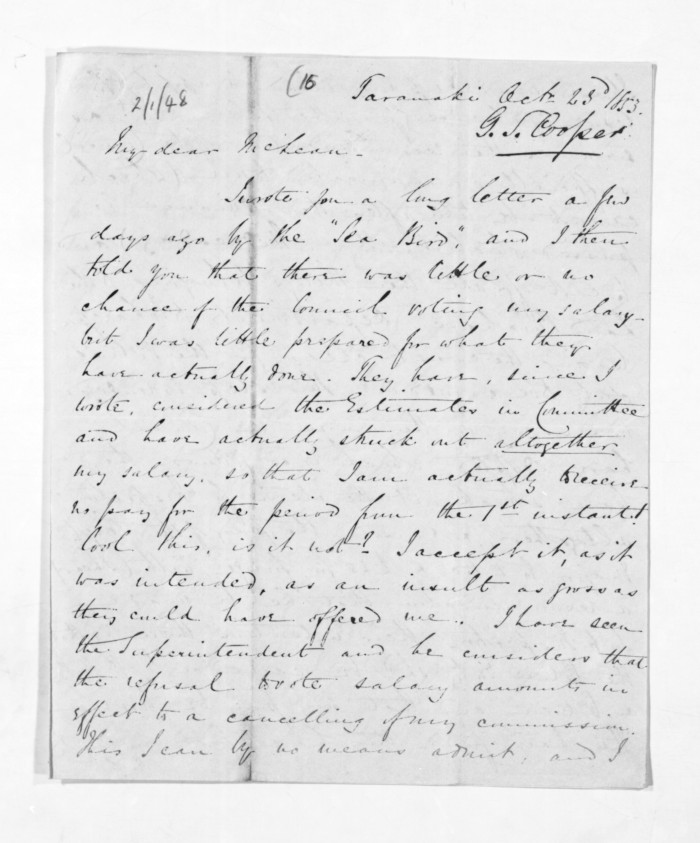 2/1/48
(16
Taranaki Octr 23d 1853.
G. S. Cooper.
My dear McLean.
I wrote you a long letter a few
days ago by the "Sea Bird", and I then
told you that there was little or no
chance of the Council voting my salary
but I was little prepared for what they
have actually done. They have, since I
wrote, considered the Estimates in Committee
and have actually struck out altogether
my salary, so that I am actually to receive
no pay for the period from the 1st instant!
Cool this, is it not? I accept it, as it
was intended, as an insult as gross as
they could have offered me. I have seen
the Superintendent and he considers that
the refusal to vote salary amounts in
effect to a cancelling of my commission.
This I can by no means admit, and I